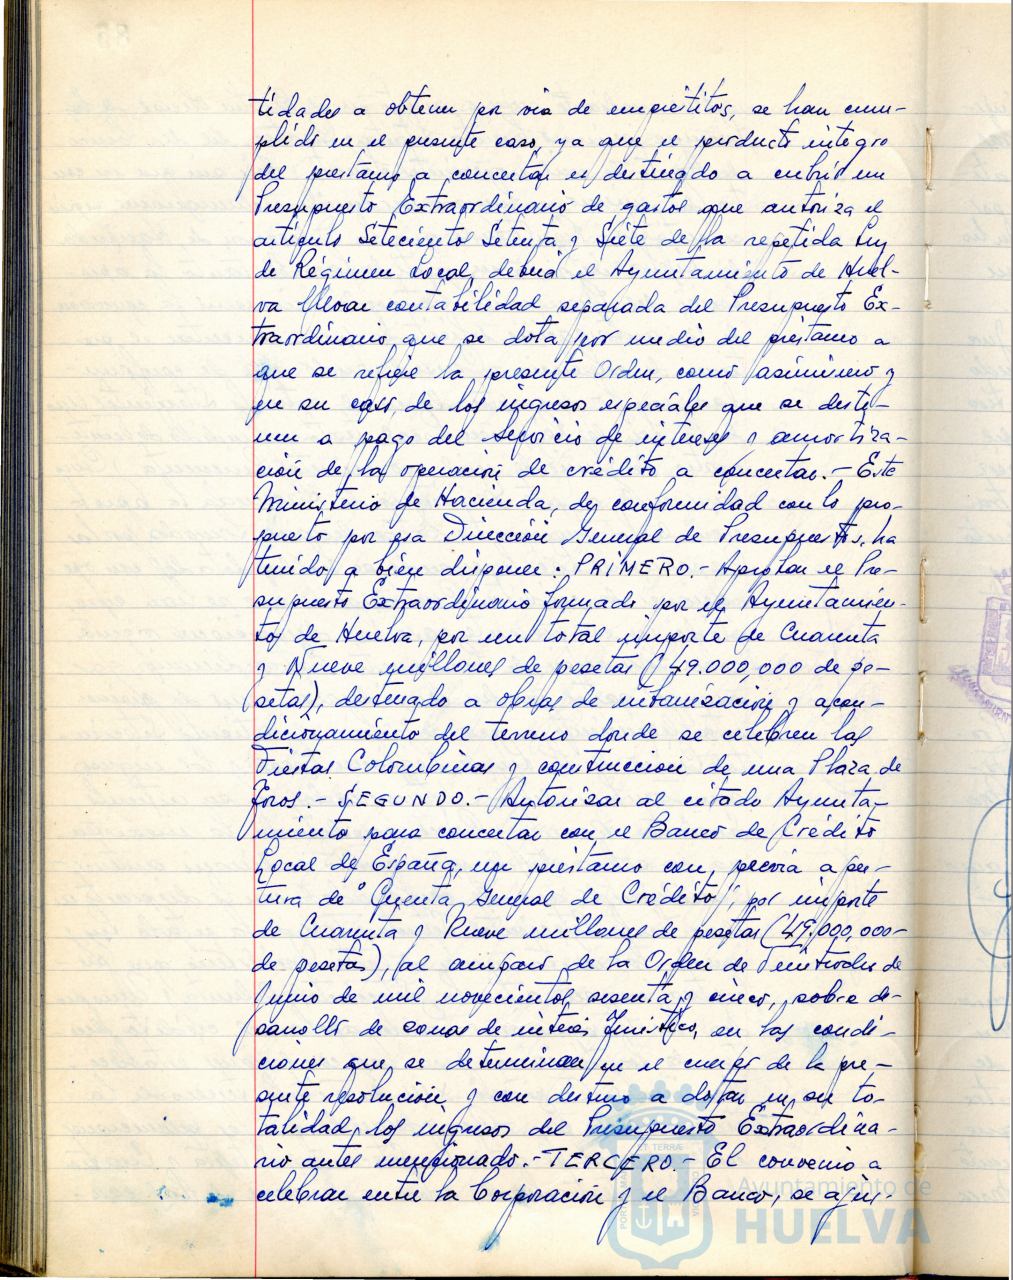 tidades a obtener por via de empréstitos, se han cum-
plido en el presente caso, ya que el producto integro
del prestamo a concertar es destinado a cubrir un
Presupuesto Extraordinario de gastos que autoriza el
articulo Setecientos Setenta y Siete de la repetida Ley
de Régimen Local, deberá el Ayuntamiento de Huel-
va llevar contabilidad separada del Presupuesto Ex-
traordinario, que se dota por medio del préstamo a
que se refiere la presente Orden, como asimismo y
en su caso, de los ingresos especiales que se desti-
nen a pago del servicio de intereses y amortiza-
ción de la operación de crédito a concertar.- Este
Ministerio de Hacienda, de conformidad con lo pro-
puesto por esa Dirección General de Presupuestos, ha
tenido a bien disponer: PRIMERO.- Aprobar el Pre-
supuesto Extraordinario formado por el Ayuntamien-
to de Huelva, por un total importe de Cuarenta
y Nueve millones de pesetas (49.000,000 de pe-
setas), destinado a obras de urbanización y acon-
dicionamiento del terreno donde se celebren las
Fiestas Colombinas y construccion de una Plaza de
Toros.- SEGUNDO.- Autorizar al citado Ayunta-
miento para concertar con el Banco de Crédito
Local de España, un préstamo con previa aper-
tura de "Cuenta General de Crédito", por importe
de Cuarenta y Nueve millones de pesetas (49.000,000-
de pesetas), al amparo de la Orden de Veintiocho de
Junio de mil novecientos sesenta y cinco, sobre de-
sarrollo de zonas de interés Turístico, en las condi-
ciones que se determinan en el cuerpo de la pre-
sente resolución y con destino a dotar en su to-
talidad, los ingresos del Presupuesto Extraordina-
rio antes mencionado.- TERCERO.- El convenio a
celebrar entre la Corporación y el Banco, se ajus-
Ayuntamiento de
HUELVA